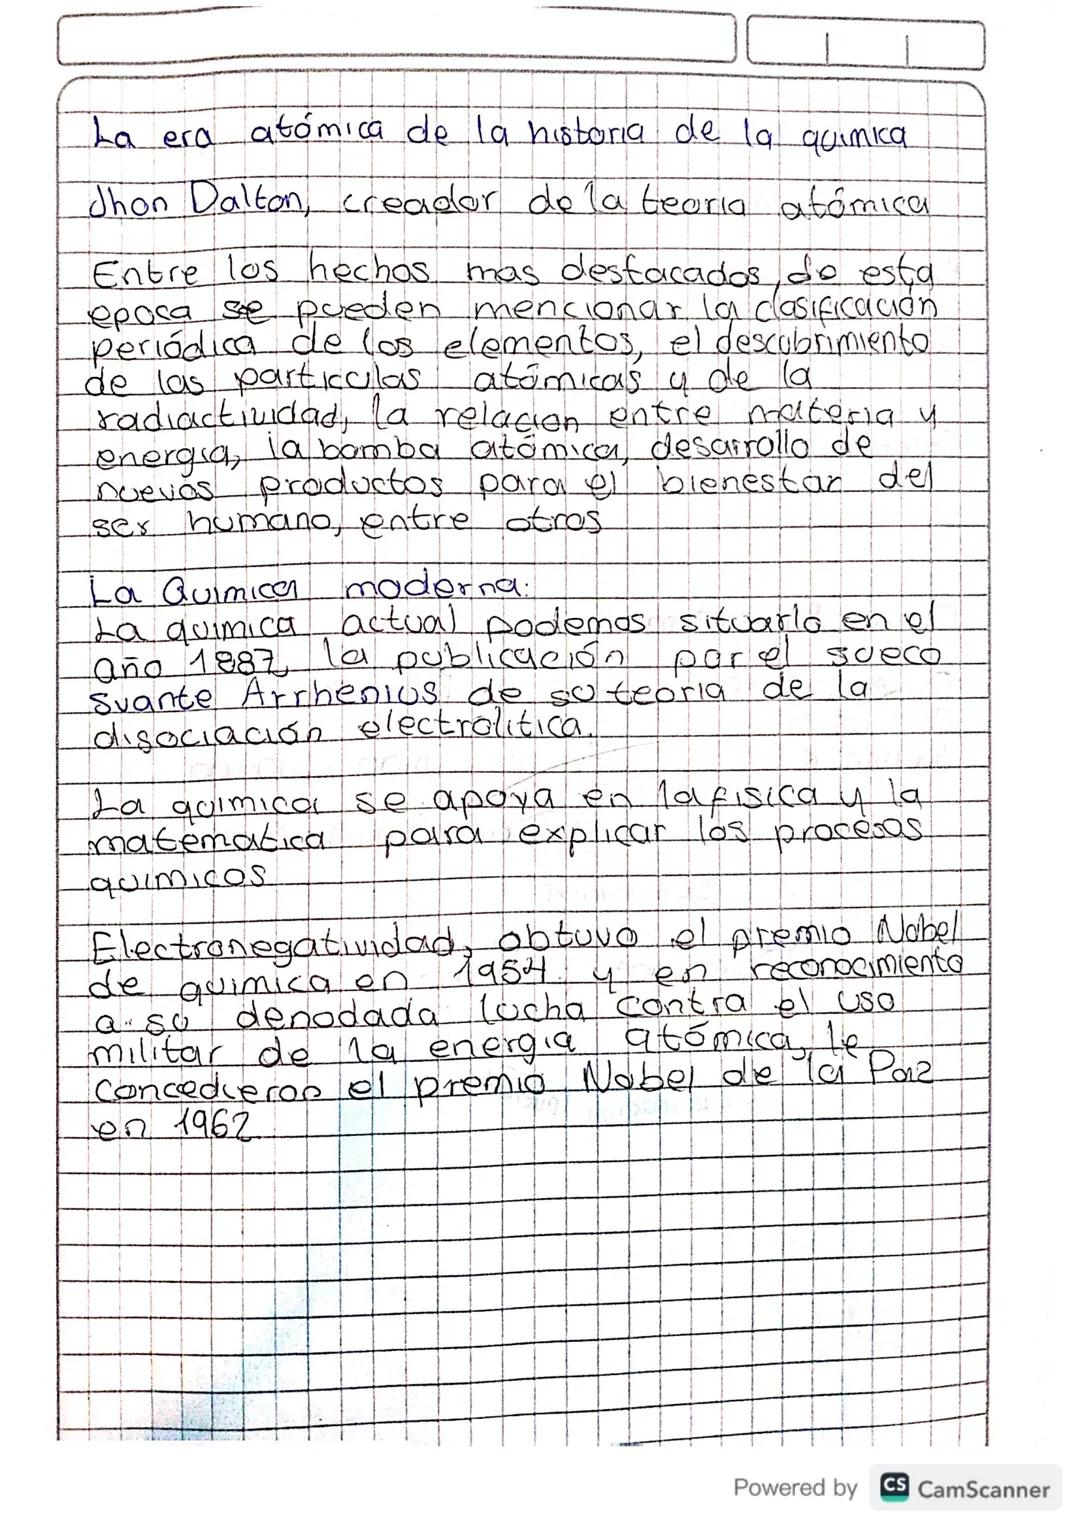 La era atómica de la historia de la quimica
Jhon Dalton, creador de la teoria atómica
Entre los hechos mas destacados, de esta
eposa se pueden mencionar la clasificación
periódica de los elementos, el descubrimiento
de las particulas atómicas y de la
radiactividad, la relacion entre materia y
energia, la bomba atómica, desarrollo de
nuevos productos para el bienestar del
ser humano, entre otros
La Quimica moderna:
La quimica actual podemos situarlo en el
año 1887, la publicación por el sueco
Svante Arrhenius de su teoria de la
disociación electrolitica.
La quimica se apoya en la fisica y la
matematica para explicar los procesos
quimicos
Electronegatividad, obtuvo el premio Nobel
de quimica en 1954 y en reconocimiento
a su denodada lucha contra el uso
militar de la energia atómica, le
concedieron el premio Nobel de la Paz
en 1962
Powered by CS CamScanner